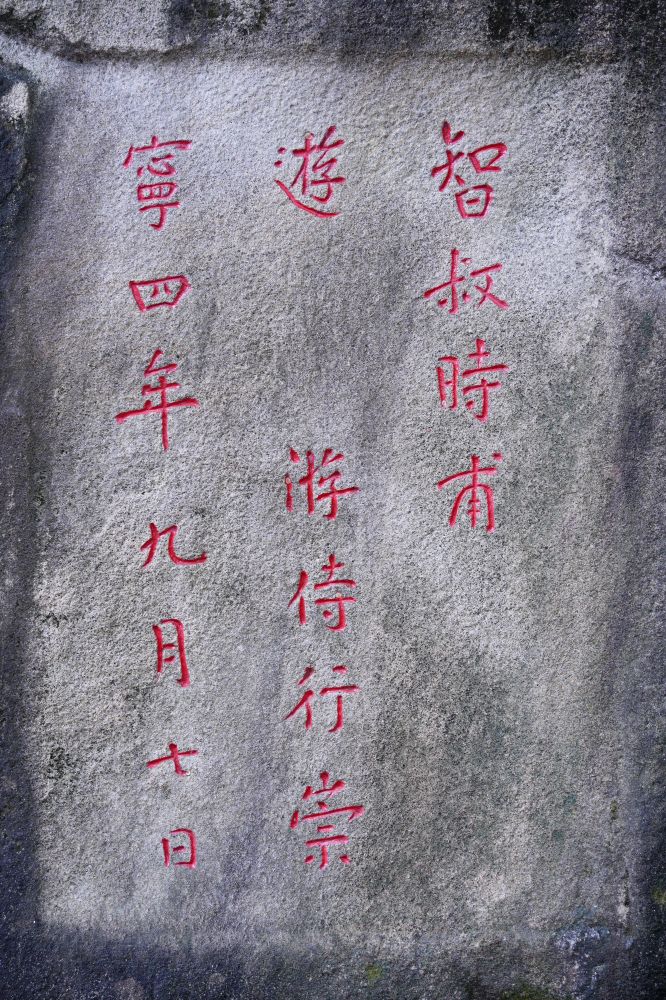 智叔時甫
遊 游侍行崇
寧四年九月七日